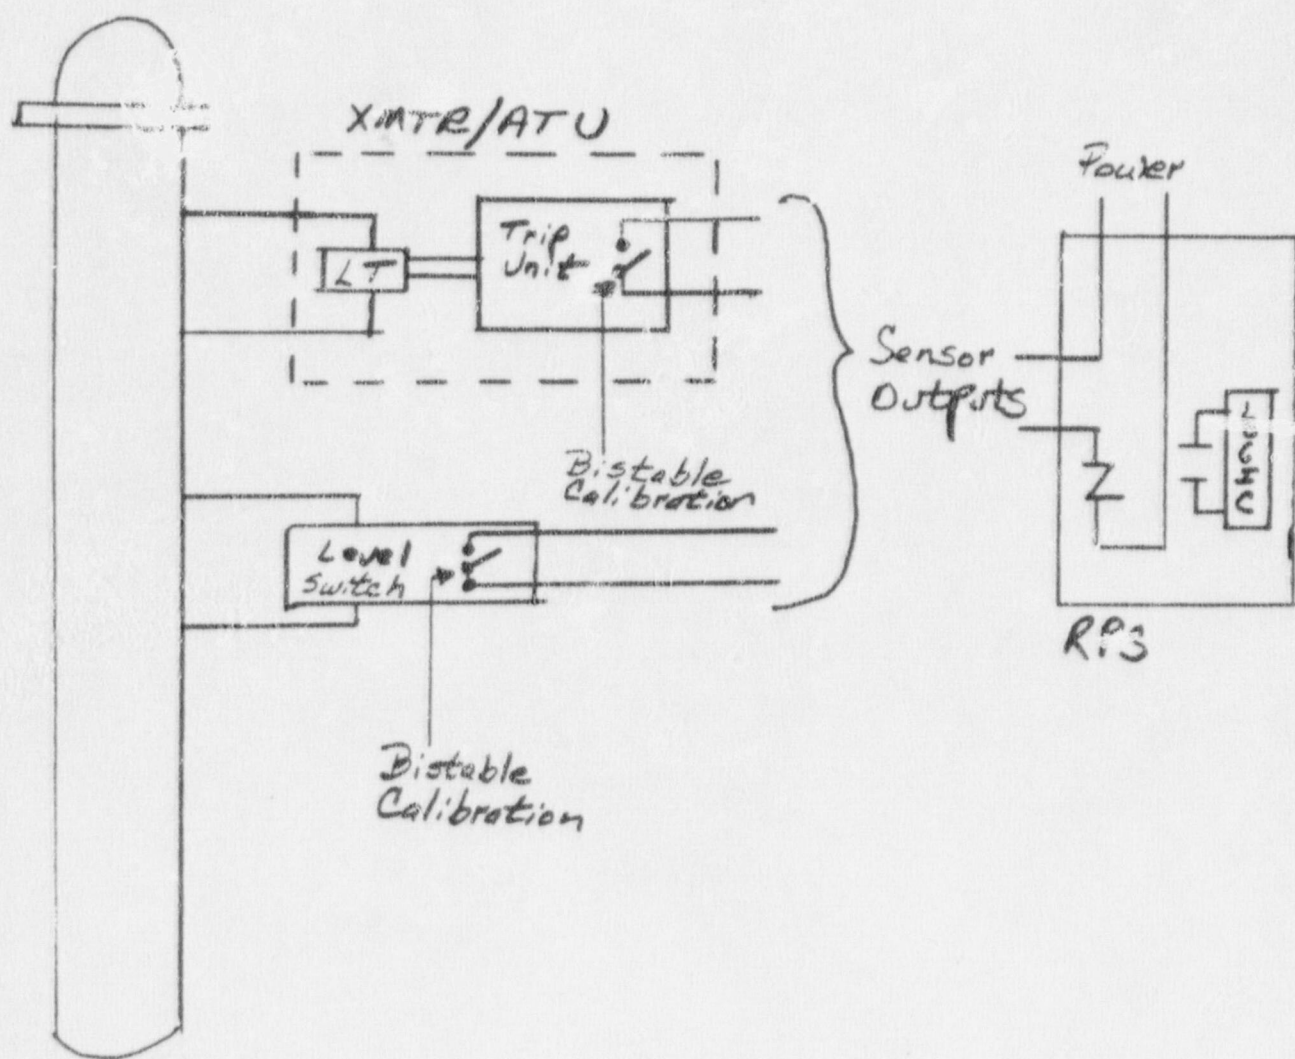 XMTR/ATU
LT
Trip
Unit
Bistable
Calibration
Level
Switch
Bistable
Calibration
Sensor
Outputs
Power
LOGIC
RPS